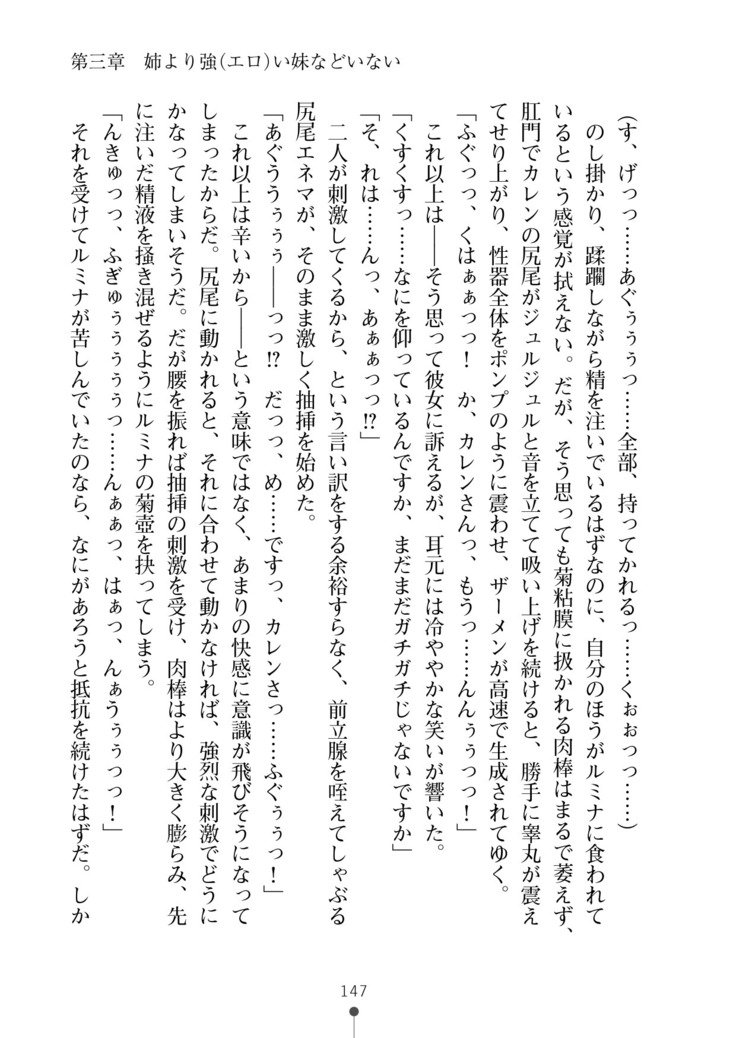 第三章　姉より強(エロ)い妹などいない
(す、げっっ……あぐぅぅぅっ……全部、持ってかれるっ……くぉぉっっ……)
のし掛かり、蹂躙しながら精を注いでいるはずなのに、自分のほうがルミナに食われて
いるという感覚が拭えない。だが、そう思っても菊粘膜に扱かれる肉棒はまるで萎えず、
肛門でカレンの尻尾がジュルジュルと音を立てて吸い上げを続けると、勝手に睾丸が震え
てせり上がり、性器全体をポンプのように震わせ、ザーメンが高速で生成されてゆく。
「ふぐっっ、くはぁぁっっ！　か、カレンさんっ、もうっ……んんぅぅっっ！」
これ以上は――そう思って彼女に訴えるが、耳元には冷ややかな笑いが響いた。
「くすくすっ……なにを仰っているんですか、まだまだガチガチじゃないですか」
「そ、れは……んっ、あぁぁっっ!?」
二人が刺激してくるから、という言い訳をする余裕すらなく、前立腺を咥えてしゃぶる
尻尾エネマが、そのまま激しく抽挿を始めた。
「あぐううぅぅぅ――っっ!?　だっっ、め……ですっ、カレンさっ……ふぐぅぅっ！」
これ以上は辛いから――という意味ではなく、あまりの快感に意識が飛びそうになって
しまったからだ。尻尾に動かれると、それに合わせて動かなければ、強烈な刺激でどうに
かなってしまいそうだ。だが腰を振れば抽挿の刺激を受け、肉棒はより大きく膨らみ、先
に注いだ精液を掻き混ぜるようにルミナの菊壺を抉ってしまう。
「んきゅっっ、ふぎゅぅぅぅぅぅっ……んぁぁっ、はぁっ、んぁうぅぅっっ！」
それを受けてルミナが苦しんでいたのなら、なにがあろうと抵抗を続けたはずだ。しか
147